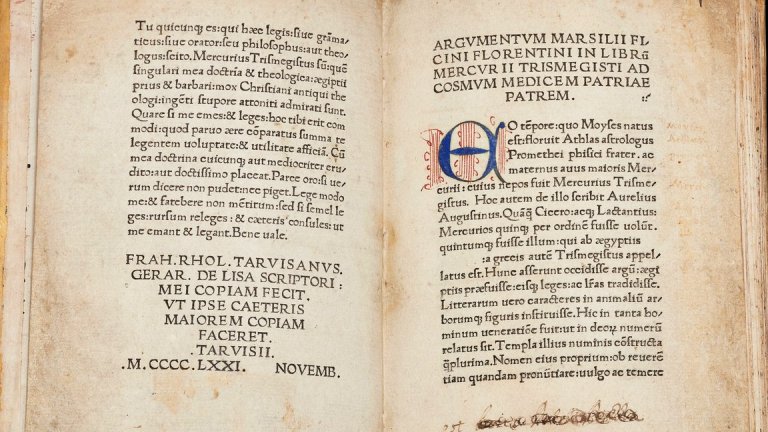 Tu quicunq; es:qui hæc legis:siue grāma
ticus:siue orator:seu philosophus:aut theo
logus:scito. Mercurius Trismegistus sū:quē
singulari mea doctrīa & theologica:ægiptii
prius & barbari:mox Christiani antiqui the
ologi:ingēti stupore attoniti admirati sunt.
Quare si me emes:& leges:hoc tibi erit com
modi:quod paruo ære cōparatus summa te
legentem uoluptate:& utilitate afficiā. Cū
mea doctrina cuicunq; aut mediocriter eru
dito:aut doctissimo placeat. Parce oro:si ue
rum dicere non pudet:nec piget. Lege modo
me:& fatebere non mētitum:sed si semel le
ges:rursum releges:& cæteris consules:ut
me emant & legant. Bene uale.
FRAH. RHOL. TARVISANVS.
GERAR. DE LISA SCRIPTORI:
MEI COPIAM FECIT.
VT IPSE CAETERIS
MAIOREM COPIAM
FACERET.
.TARVISII.
.M.CCCC.LXXI. NOVEMB.
ARGVMENTVM MARSILII FI
CINI FLORENTINI IN LIBRŪ
MERCVRII TRISMEGISTI AD
COSMVM MEDICEM PATRIAE
PATREM.
EO tēpore:quo Moyses natus
est:floruit Athlas astrologus
Promethei phisici frater. ac
maternus auus maioris Mer
curii:cuius nepos fuit Mercurius Trisme
gistus. Hoc autem de illo scribit Aurelius
Augustinus. Quāq̄ Cicero:atq; Lactantius:
Mercurios quinq; per ordinē fuisse uolūt.
quintumq; fuisse illum:qui ab ægyptiis
:a græcis autē Trismegistus appel
latus est. Hunc asserunt occidisse argū:ægi
ptiis præfuisse:eisq; leges:ac lr̄as tradidisse.
Litterarum uero caracteres in animaliū ar
borumq; figuris instituisse. Hic in tanta ho
minum ueneratiōne fuit:ut in deoꝝ numerū
relatus sit. Templa illius numinis cōstructa
q̄plurima. Nomen eius proprium:ob reuerē
tiam quandam pronūtiare:uulgo ac temere